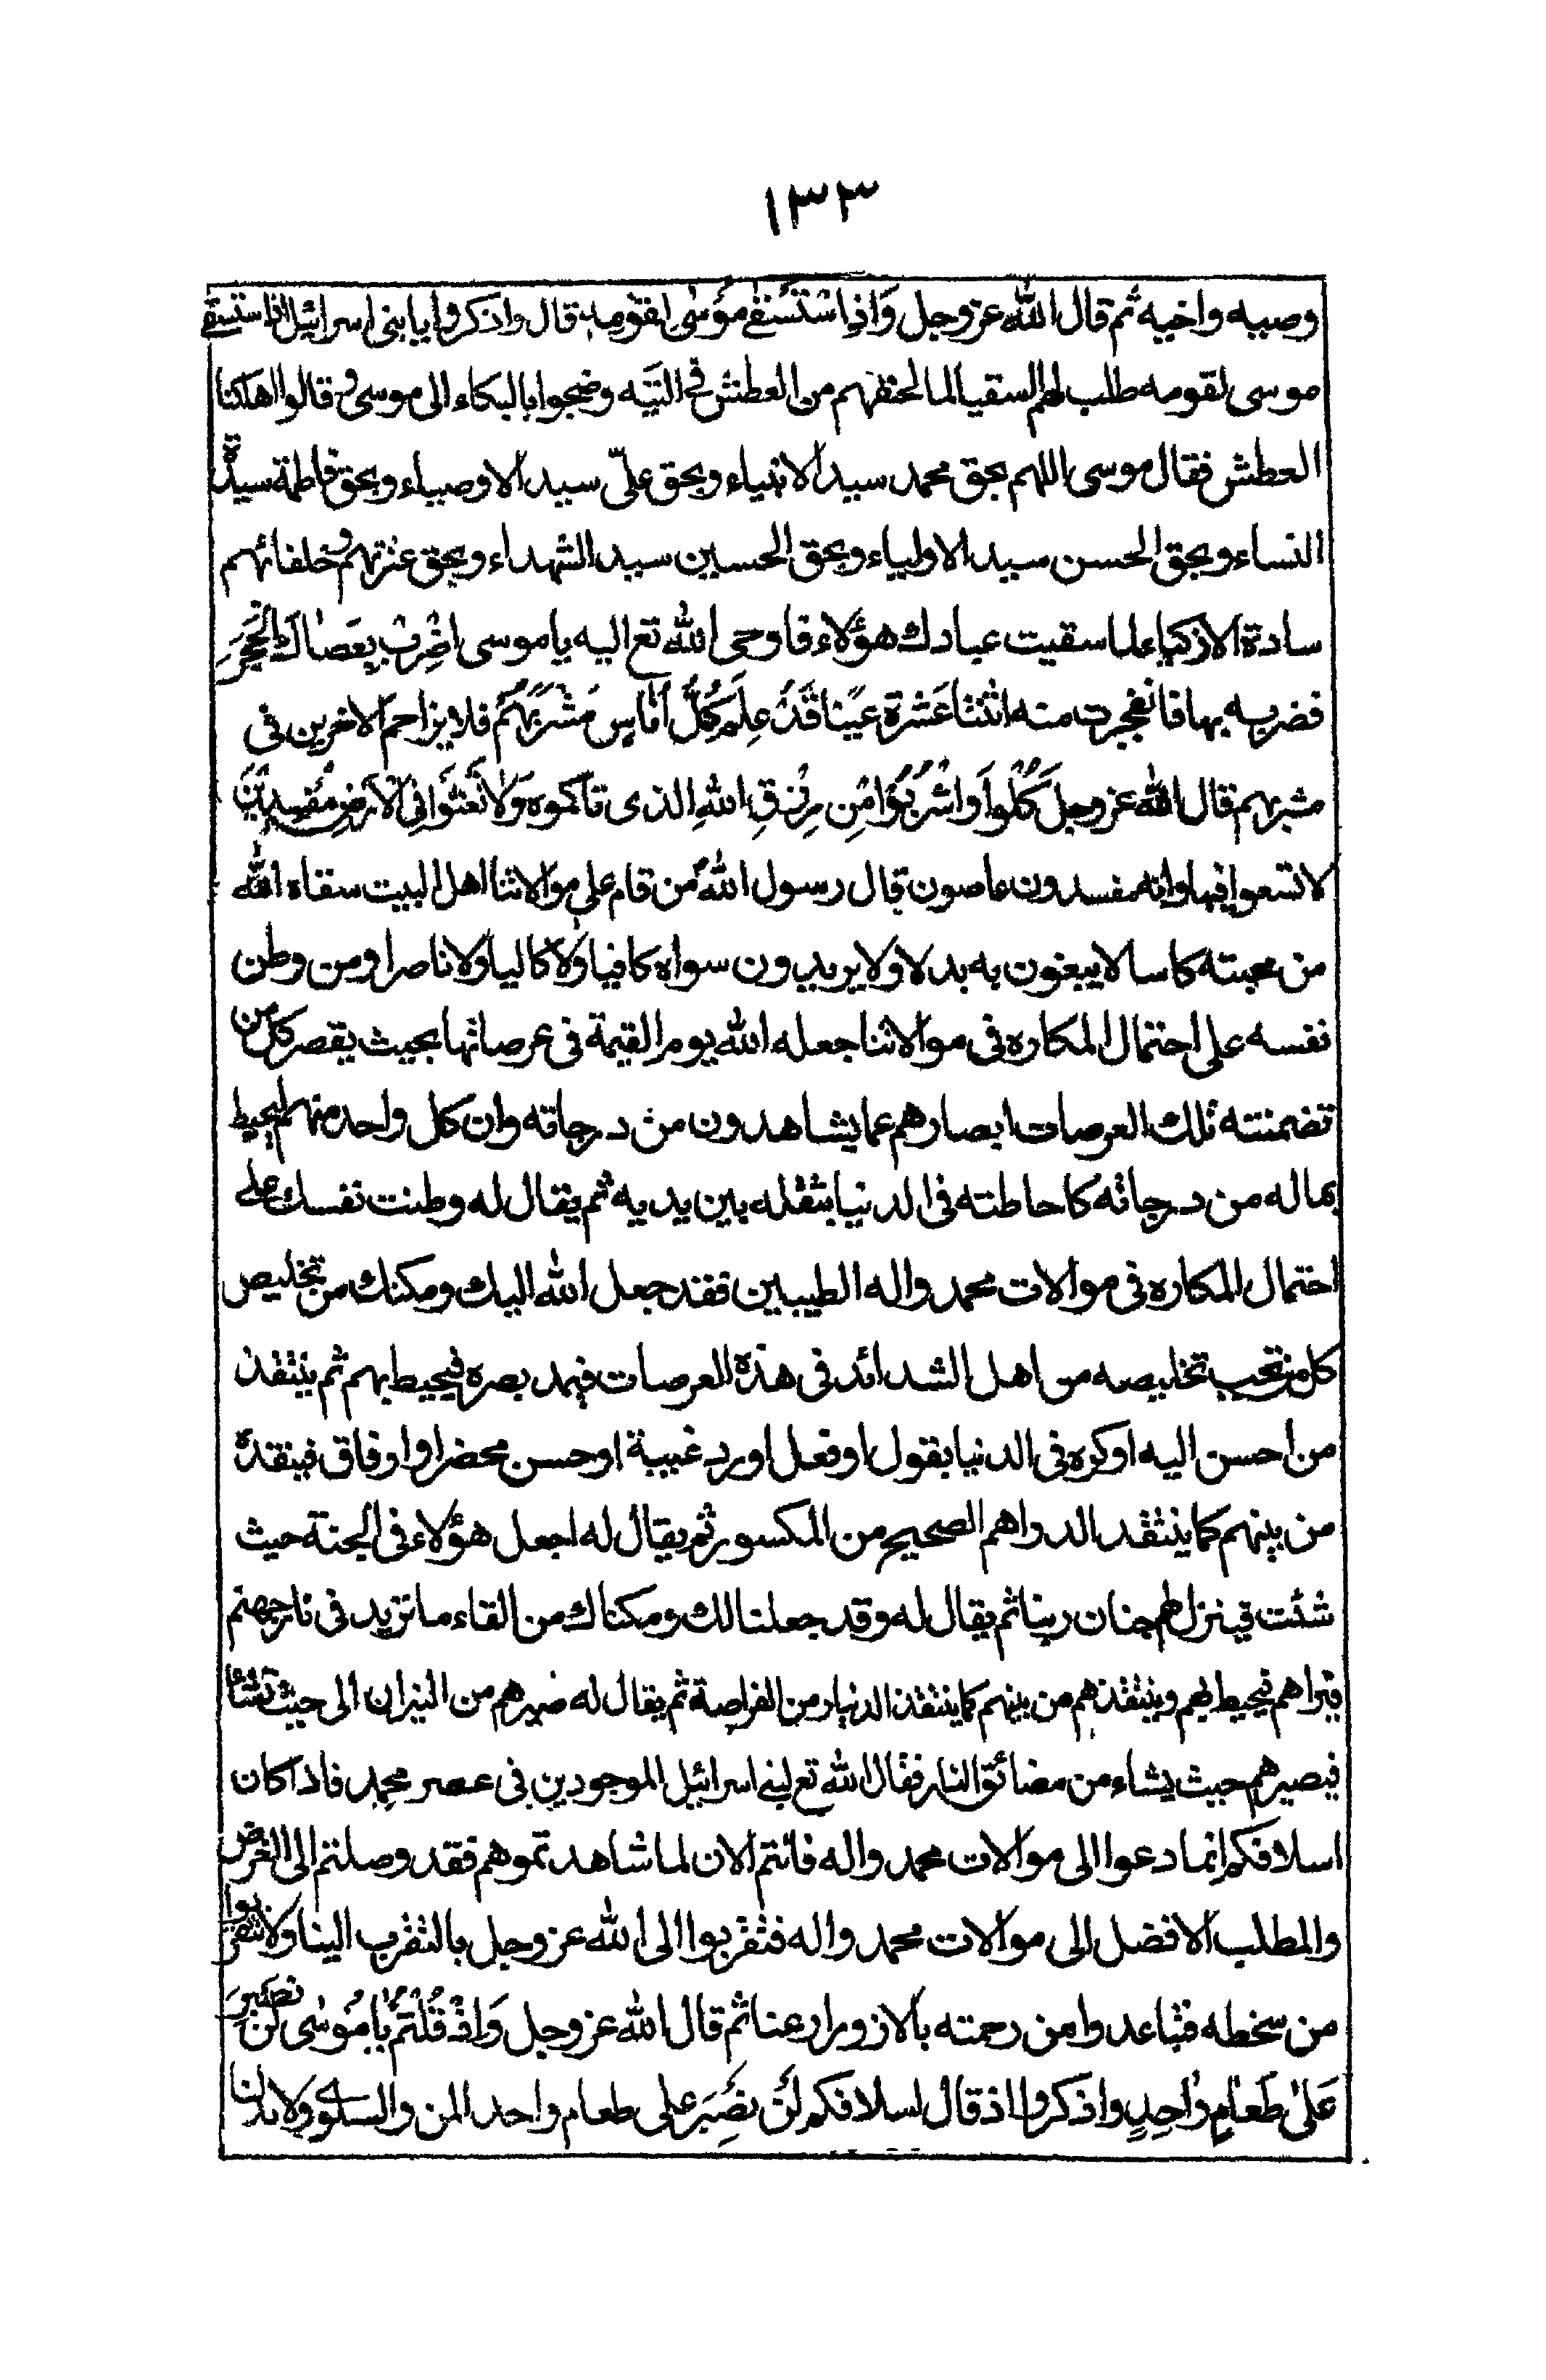 ١٣٣
وصيه واخيه ثم قال الله عزوجل وَاِذِ اسْتَسْقٰى مُوسٰى لِقَوْمِهٖ قال واذكروا يا بنى اسرائيل اذ استسقى
موسى لقومه طلب لهم السقيا لما لحقهم من العطش فى التيه وضجوا بالبكاء الى موسى وقالوا اهلكنا
العطش فقال موسى اللهم بحق محمد سيد الانبياء وبحق علىّ سيد الاوصياء وبحق فاطمة سيدة
النساء وبحق الحسن سيد الاولياء وبحق الحسين سيد الشهداء وبحق عترتهم وخلفائهم
سادة الازكياء لما سقيت عبادك هؤلاء فاوحى الله تع اليه يا موسى اضْرِبْ بِعَصٰاكَ الْحَجَرَ
فضربه بها فانفجرت منه اثْنَتٰا عَشْرَةَ عَيْنًا قَدْ عَلِمَ كُلُّ اُنٰاسٍ مَشْرَبَهُمْ فلا يزاحم الاخرين فى
مشربهم قال الله عزوجل كُلُوا وَاشْرَبُوا مِنْ رِزْقِ اللهِ الذى تاكموه وَلا تَعْثَوْا فِى الْاَرْضِ مُفْسِدِينَ
لا تسعوا فيها وانتم مفسدون عاصون قال رسول الله ص من قام على موالاتنا اهل البيت سقاه الله
من محبته كاسا لا يبغون به بدلا ولا يريدون سواه كافيا ولا كاليا ولا ناصرا ومن وطن
نفسه على احتمال المكاره فى موالاتنا جعله الله يوم القيمة فى عرصاتها بحيث يقصر كل من
تضمنته تلك العرصات ابصارهم عما يشاهدون من درجاته وان كل واحد منهم ليحيط
بما له من درجاته كاحاطته فى الدنيا بثقله بين يديه ثم يقال له وطنت نفسك على
احتمال المكاره فى موالات محمد واله الطيبين فقد جعل الله اليك ومكنك من تخليص
كل من تحب تخليصه من اهل الشدائد فى هذه العرصات فيمد بصره فيحيط بهم ثم ينتقذ
من احسن اليه او كره فى الدنيا بقول او فعل او رد غيبة او حسن محضر او ارفاق فينقده
من بينهم كما ينتقد الدراهم الصحيح من المكسور ثم يقال له اجعل هؤلاء فى الجنة حيث
شئت فينزلهم جنان ربنا ثم يقال له وقد جعلنا لك ومكناك من القاء ما تريد فى نار جهنم
فيراهم فيحيط بهم وينتقذهم من بينهم كما ينتقذ الدينار من القراصة ثم يقال له صيرهم من النيران الى حيث تشاء
فيصيرهم حيث يشاء من مضائق النار فقال الله تع لبنى اسرائيل الموجودين فى عصر محمد فاذا كان
اسلافكم انما دعوا الى موالات محمد واله فانتم الان لما شاهدتموهم فقد وصلتم الى الغرض
والمطلب الافضل الى موالات محمد واله فتقربوا الى الله عزوجل بالتقرب الينا ولا تتقربوا
من سخطه فتباعدوا من رحمته بالازورار عنا ثم قال الله عزوجل وَاِذْ قُلْتُمْ يٰا مُوسٰى لَنْ نَصْبِرَ
عَلٰى طَعٰامٍ وٰاحِدٍ واذكروا اذ قال اسلافكم لَنْ نَصْبِرَ على طعام واحد المن والسلوى ولا بد لنا